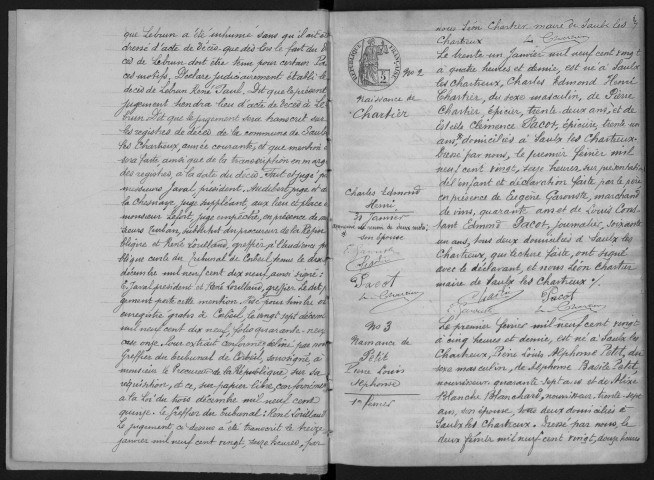 que Lebrun a été inhumé sans qu'il ait été
dressé d'acte de décès, que dès lors le fait du dé-
cès de Lebrun doit être tenu pour certain. Par
ces motifs, Déclare judiciairement établi le
décès de Lebrun René Paul. Dit que le présent
jugement tiendra lieu d'acte de décès à Le-
brun. Dit que le jugement sera transcrit sur
les registres de décès de la commune de Saulx
les Chartreux, année courante, et que mention en
sera faite ainsi que de la transcription en marge
des registres, à la date du décès. Fait et jugé par
messieurs Javal, président, Audebert, juge et de
la Chesnaye, juge suppléant, aux lieu et place de
monsieur juge empêché, en présence de mes-
sieurs substitut du procureur de la Répu-
blique et René Lorillard, greffier, à l'audience pu-
blique civile du Tribunal de Corbeil, tenue le dix
décembre mil neuf cent dix neuf, ainsi signé :
Javal président et René Lorillard, greffier. Le dit ju-
gement porte cette mention. Visé pour timbre et
enregistré gratis à Corbeil, le vingt sept décembre
mil neuf cent dix neuf, folio quarante-neuf
case onze. Pour extrait conforme, délivré par nous
Greffier du tribunal de Corbeil, soussigné, à
monsieur le Procureur de la République sur sa
réquisition, et ce, sur papier libre, conformément
à la loi du trois décembre mil neuf cent
quinze. Le greffier du Tribunal : René Lorillard
Le jugement ci-dessus a été transcrit le treize
janvier mil neuf cent vingt, seize heures, par
nous Léon Chartier maire de Saulx les
Chartreux
RÉPUBLIQUE FRANÇAISE
No 2
Naissance de
Chartier
Charles Edmond
Henri
31 Janvier
Le trente un Janvier mil neuf cent vingt
à quatre heures et demie, est né à Saulx
les Chartreux, Charles Edmond Henri
Chartier, du sexe masculin, de Pierre
Chartier, épicier, trente deux ans, et de
Estelle Clémence Pacot, épicière, trente un
ans, domiciliés à Saulx les Chartreux.
Dressé par nous, le premier février mil
neuf cent vingt, seize heures, sur présentation
de l'enfant et déclaration faite par le père
en présence de Eugène Garouste, marchand
de vins, quarante ans et de Louis Cons-
tant Edmond Pacot, journalier, soixante
un ans, tous deux domiciliés à Saulx les
Chartreux, qui lecture faite, ont signé
avec le déclarant, et nous Léon Chartier
maire de Saulx les Chartreux ./.
son épouse
Pacot
Chartier
Pacot
No 3
Naissance de
Petit
Pierre Louis
Alphonse
1er février
Le premier février mil neuf cent vingt
à cinq heures et demie, est né à Saulx les
Chartreux, Pierre Louis Alphonse Petit, du
sexe masculin, de Alphonse Basile Petit,
nourrisseur, quarante sept ans et de Alixe
Blanche Blanchard, nourrisseur, trente-sept
ans, son épouse, tous deux domiciliés à
Saulx les Chartreux. Dressé par nous, le
deux février mil neuf cent vingt, douze heures